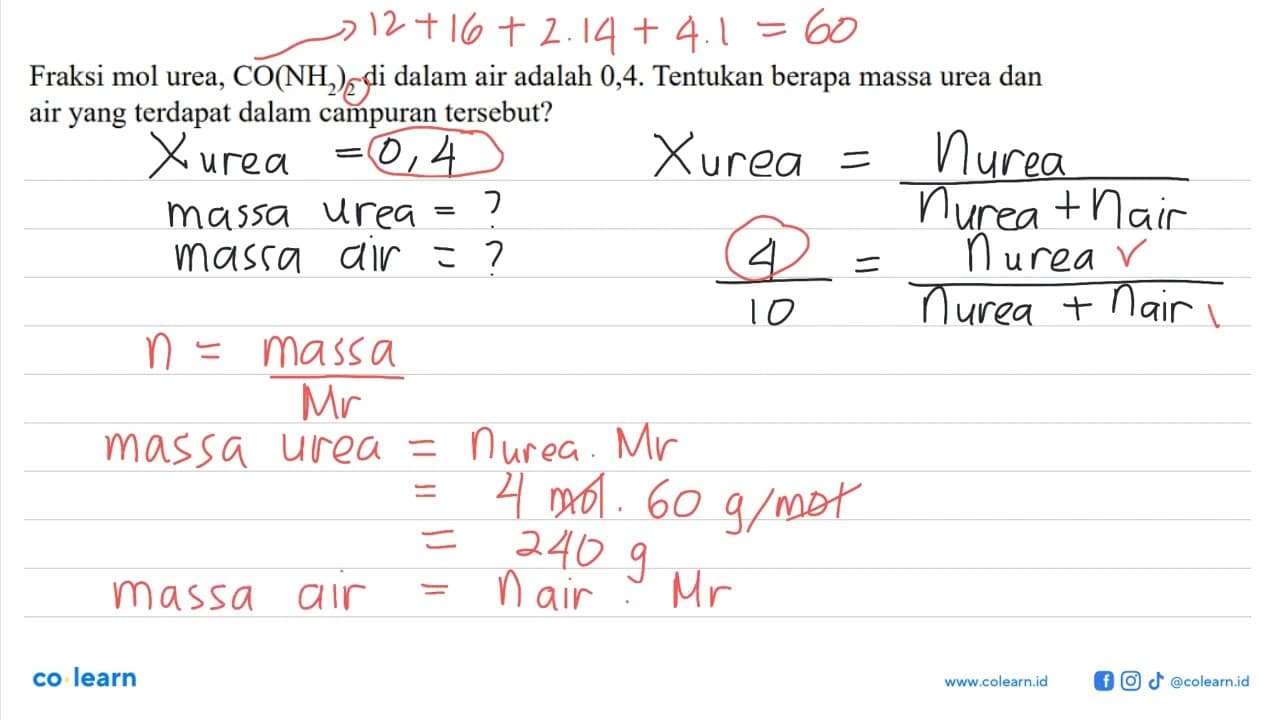 12 + 16 + 2.14 + 4.1 = 60
Fraksi mol urea, CO(NH₂)₂ di dalam air adalah 0,4. Tentukan berapa massa urea dan
air yang terdapat dalam campuran tersebut?
X urea = 0,4
massa urea = ?
massa air = ?
X urea = n urea
n urea + n air
4 = n urea
10 n urea + n air
n = massa
Mr
massa urea = n urea . Mr
= 4 mol . 60 g/mol
= 240 g
massa air = n air . Mr
co learn
www.colearn.id
@colearn.id